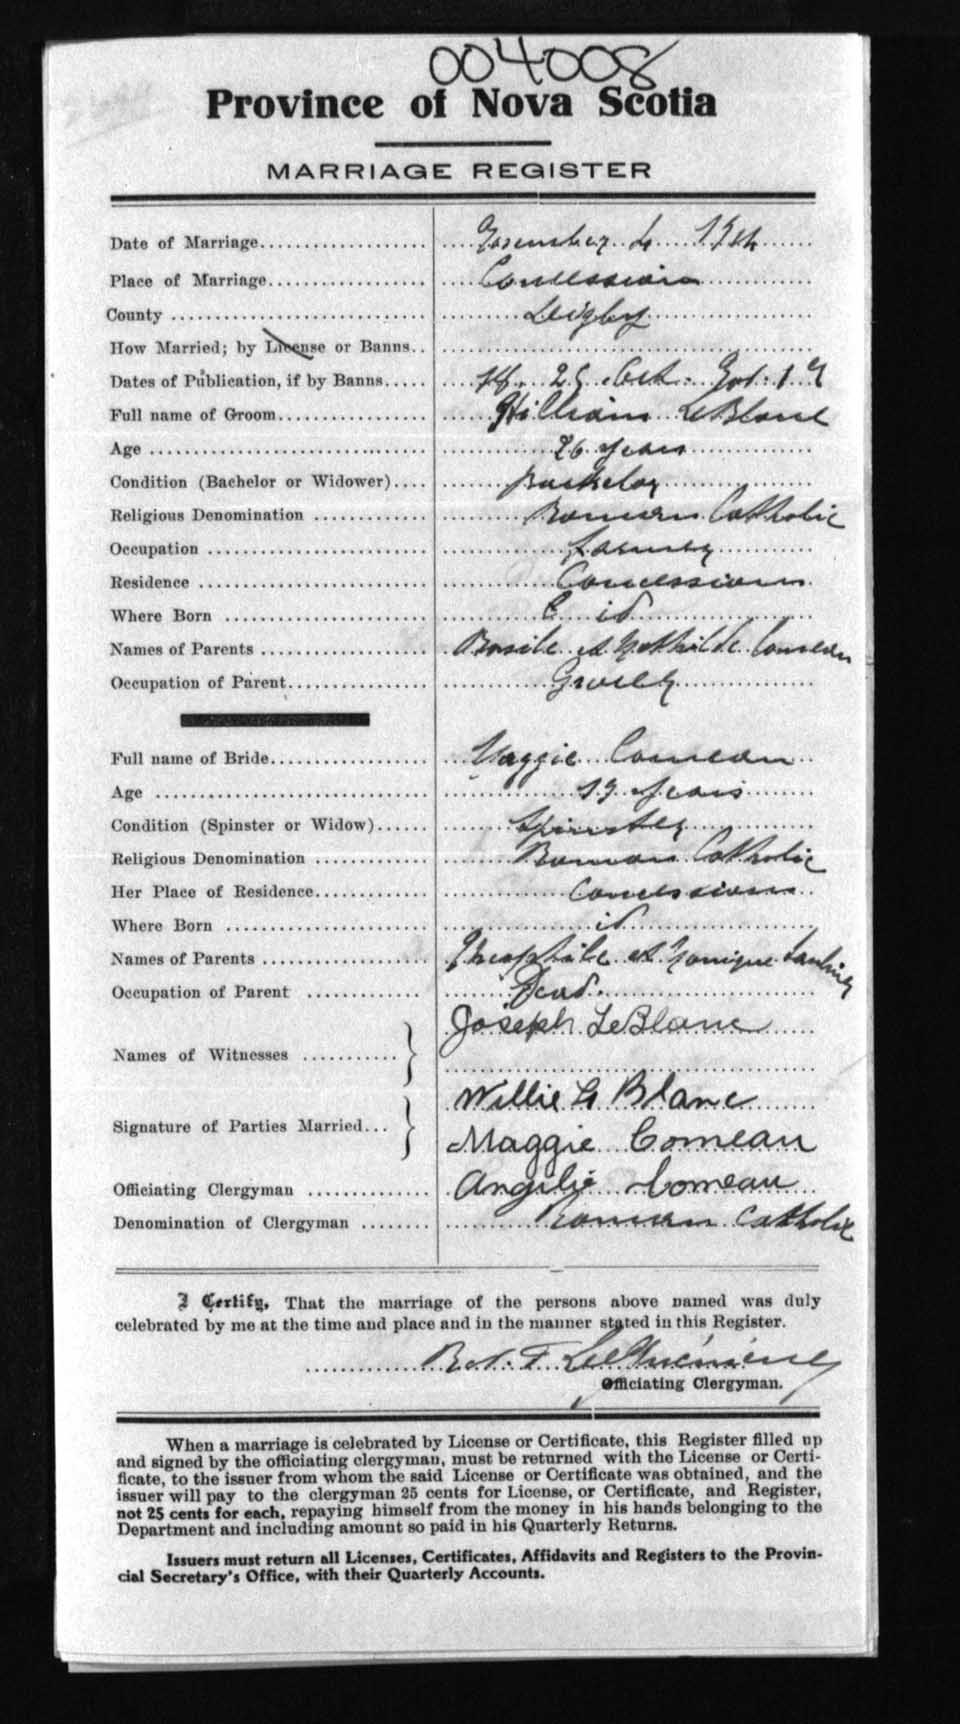 004008
Province of Nova Scotia
MARRIAGE REGISTER
Date of Marriage November 4
Place of Marriage Concession
County Digby
How Married; by License or Banns
Dates of Publication, if by Banns 18, 25 Oct. Nov. 1
Full name of Groom William LeBlanc
Age 26 years
Condition (Bachelor or Widower) Bachelor
Religious Denomination Roman Catholic
Occupation farmer
Residence Concession
Where Born id
Names of Parents Basile et Mathilde Comeau
Occupation of Parent
Full name of Bride Maggie Comeau
Age 19 years
Condition (Spinster or Widow) Spinster
Religious Denomination Roman Catholic
Her Place of Residence Concession
Where Born id
Names of Parents Theophile et Monique
Occupation of Parent Dead.
Names of Witnesses Joseph LeBlanc
Signature of Parties Married Willie Le Blanc
Maggie Comeau
Officiating Clergyman Angelie Comeau
Denomination of Clergyman Roman Catholic
I Certify, That the marriage of the persons above named was duly
celebrated by me at the time and place and in the manner stated in this Register.
Officiating Clergyman.
When a marriage is celebrated by License or Certificate, this Register filled up
and signed by the officiating clergyman, must be returned with the License or Certi-
ficate, to the issuer from whom the said License or Certificate was obtained, and the
issuer will pay to the clergyman 25 cents for License, or Certificate, and Register,
not 25 cents for each, repaying himself from the money in his hands belonging to the
Department and including amount so paid in his Quarterly Returns.
Issuers must return all Licenses, Certificates, Affidavits and Registers to the Provin-
cial Secretary's Office, with their Quarterly Accounts.